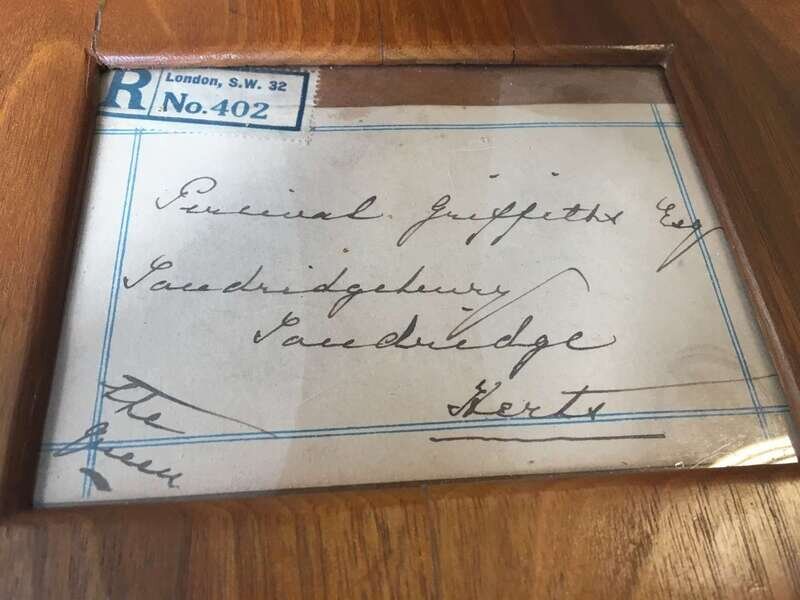 R London, S.W. 32
No. 402
Percival Griffiths Esq
Sandridgebury
Sandridge
Herts
the
Queen